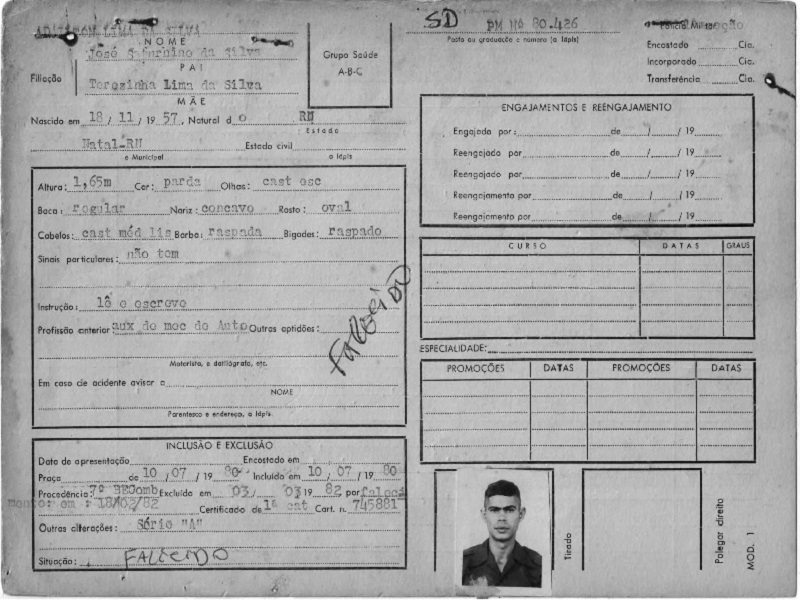 LIMA DA SILVA
NOME
José da Silva
PAI
Filiação
Terezinha Lima da Silva
MÃE
Nascido em 18 / 11 / 19 57, Natural do RN
Estado
Natal-RN Estado civil
e Municipal a lápis
Grupo Saúde
A-B-C
SD PM Nº 80.426
Posto ou graduação e número (a lápis)
Polícia Militar
Encostado Cia.
Incorporado Cia.
Transferência Cia.
ENGAJAMENTOS E REENGAJAMENTO
Engajado por: de / / 19
Reengajado por de / / 19
Reengajado por de / / 19
Reengajamento por de / / 19
Reengajamento por de / / 19
Altura: 1,65m Cor: parda Olhos: cast esc
Boca: regular Nariz: concavo Rosto: oval
Cabelos: cast méd lis Barba: raspada Bigodes: raspado
Sinais particulares: não tem
Instrução: lê e escreve
Profissão anterior: aux de mec de Auto Outras aptidões:
Motorista, e datilógrafo, etc.
Em caso de acidente avisar a
NOME
Parentesco e endereço, a lápis
Falecido
CURSO DATAS GRAUS
ESPECIALIDADE:
PROMOÇÕES DATAS PROMOÇÕES DATAS
INCLUSÃO E EXCLUSÃO
Data de apresentação Encostado em
Praça de 10 / 07 / 19 80 Incluido em 10 / 07 / 19 80
Procedência: 7º BEComb Excluido em 03 / 03 19 82 por faleci
mento: em : 18/02/82 Certificado de 1ª cat Cart. n. 745881
Outras alterações: Série "A"
Situação: FALECIDO
Tirado
Polegar direito
MOD. 1